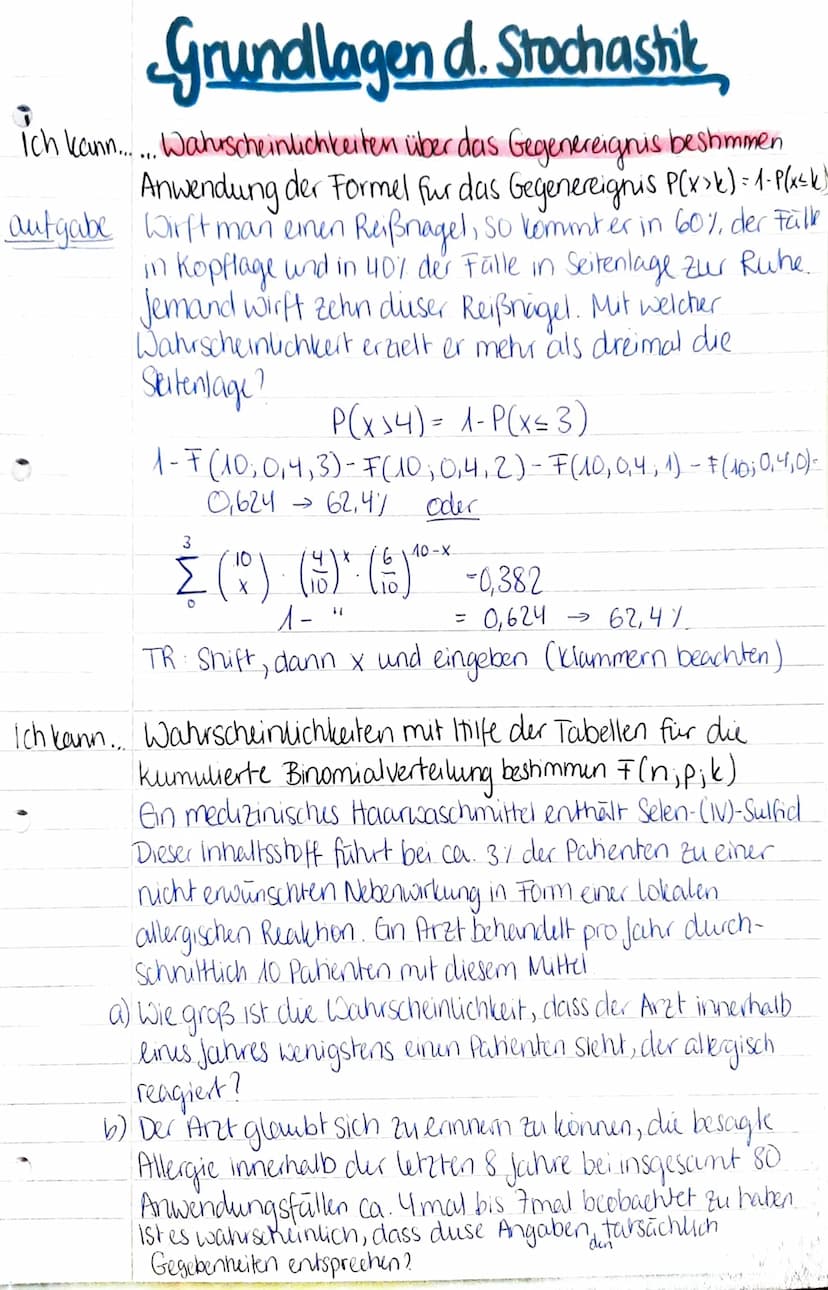 Grundlagen d. Stochastik
Ich kann... ... Wahrscheinlichkeiten über das Gegenereignis bestimmen
Anwendung der Formel für das Gegenereignis P(x>k) = 1-P(x≤k)
Aufgabe Wirft man einen Reißnagel, so kommt er in 60% der Fälle
in Kopflage und in 40% der Fälle in Seitenlage zur Ruhe.
Jemand wirft zehn dieser Reißnägel. Mit welcher
Wahrscheinlichkeit erzielt er mehr als dreimal die
Seitenlage?
P(x>4) = 1-P(x≤3)
1-F(10;0,4,3)-F(10;0,4,2)-F(10,0,4,1)-F(10;0,4,0)=
0,624 → 62,4% oder
3
∑ (10 x) · (4/10)^x · (6/10)^10-x =0,382
0
1- " = 0,624 → 62,4%
TR: Shift, dann x und eingeben (Klammern beachten)
Ich kann... Wahrscheinlichkeiten mit Hilfe der Tabellen für die
kumulierte Binomialverteilung bestimmen F(n;p;k)
Ein medizinisches Haarwaschmittel enthält Selen-(IV)-Sulfid
Dieser Inhaltsstoff führt bei ca. 3% der Patienten zu einer
nicht erwünschten Nebenwirkung in Form einer lokalen
allergischen Reaktion. Ein Arzt behandelt pro Jahr durch-
schnittlich 10 Patienten mit diesem Mittel
a) Wie groß ist die Wahrscheinlichkeit, dass der Arzt innerhalb
eines Jahres wenigstens einen Patienten sieht, der allergisch
reagiert?
b) Der Arzt glaubt sich zu erinnern zu können, die besagte
Allergie innerhalb der letzten 8 Jahre bei insgesamt 80
Anwendungsfällen ca. 4mal bis 7mal beobachtet zu haben
Ist es wahrscheinlich, dass diese Angaben den tatsächlich
Gegebenheiten entsprechen?